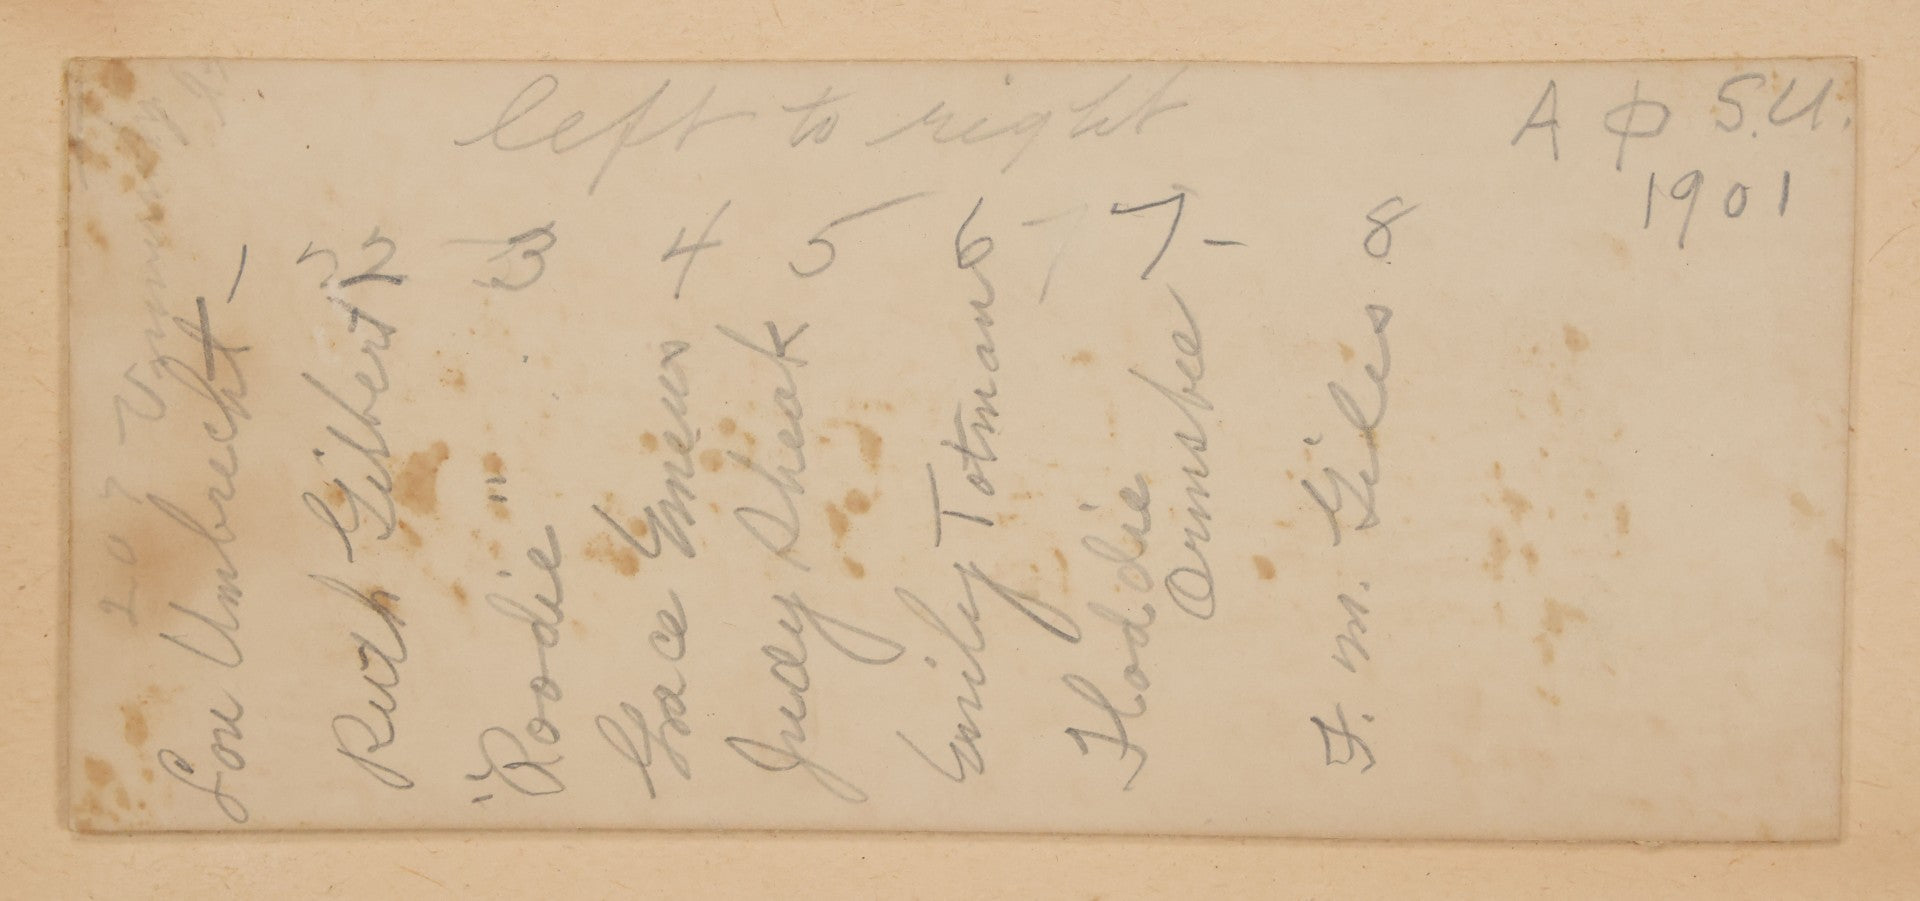 left to right
A Φ S.U.
1901
Lou Umbrecht -
Ruth Gilbert 2
"Roodie" 3
Grace Emens 4
Judy Sheak 5
Emily Totman 6
Floddie
Ormsbee 7 -
F. M. Giles 8